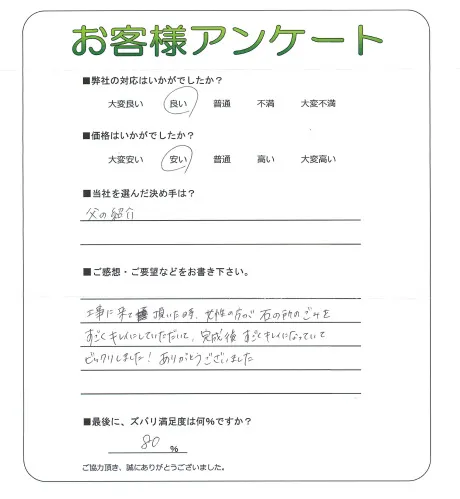 お客様アンケート
■弊社の対応はいかがでしたか?
大変良い 良い 普通 不満 大変不満
■価格はいかがでしたか?
大変安い 安い 普通 高い 大変高い
■当社を選んだ決め手は?
父の紹介
■ご感想・ご要望などをお書き下さい。
工事に来て頂いた時、男性の方が石の所のごみを
すごくキレイにしていただいて、完成後すごくキレイになっていて
ビックリしました!ありがとうございました
■最後に、ズバリ満足度は何%ですか?
80 %
ご協力頂き、誠にありがとうございました。